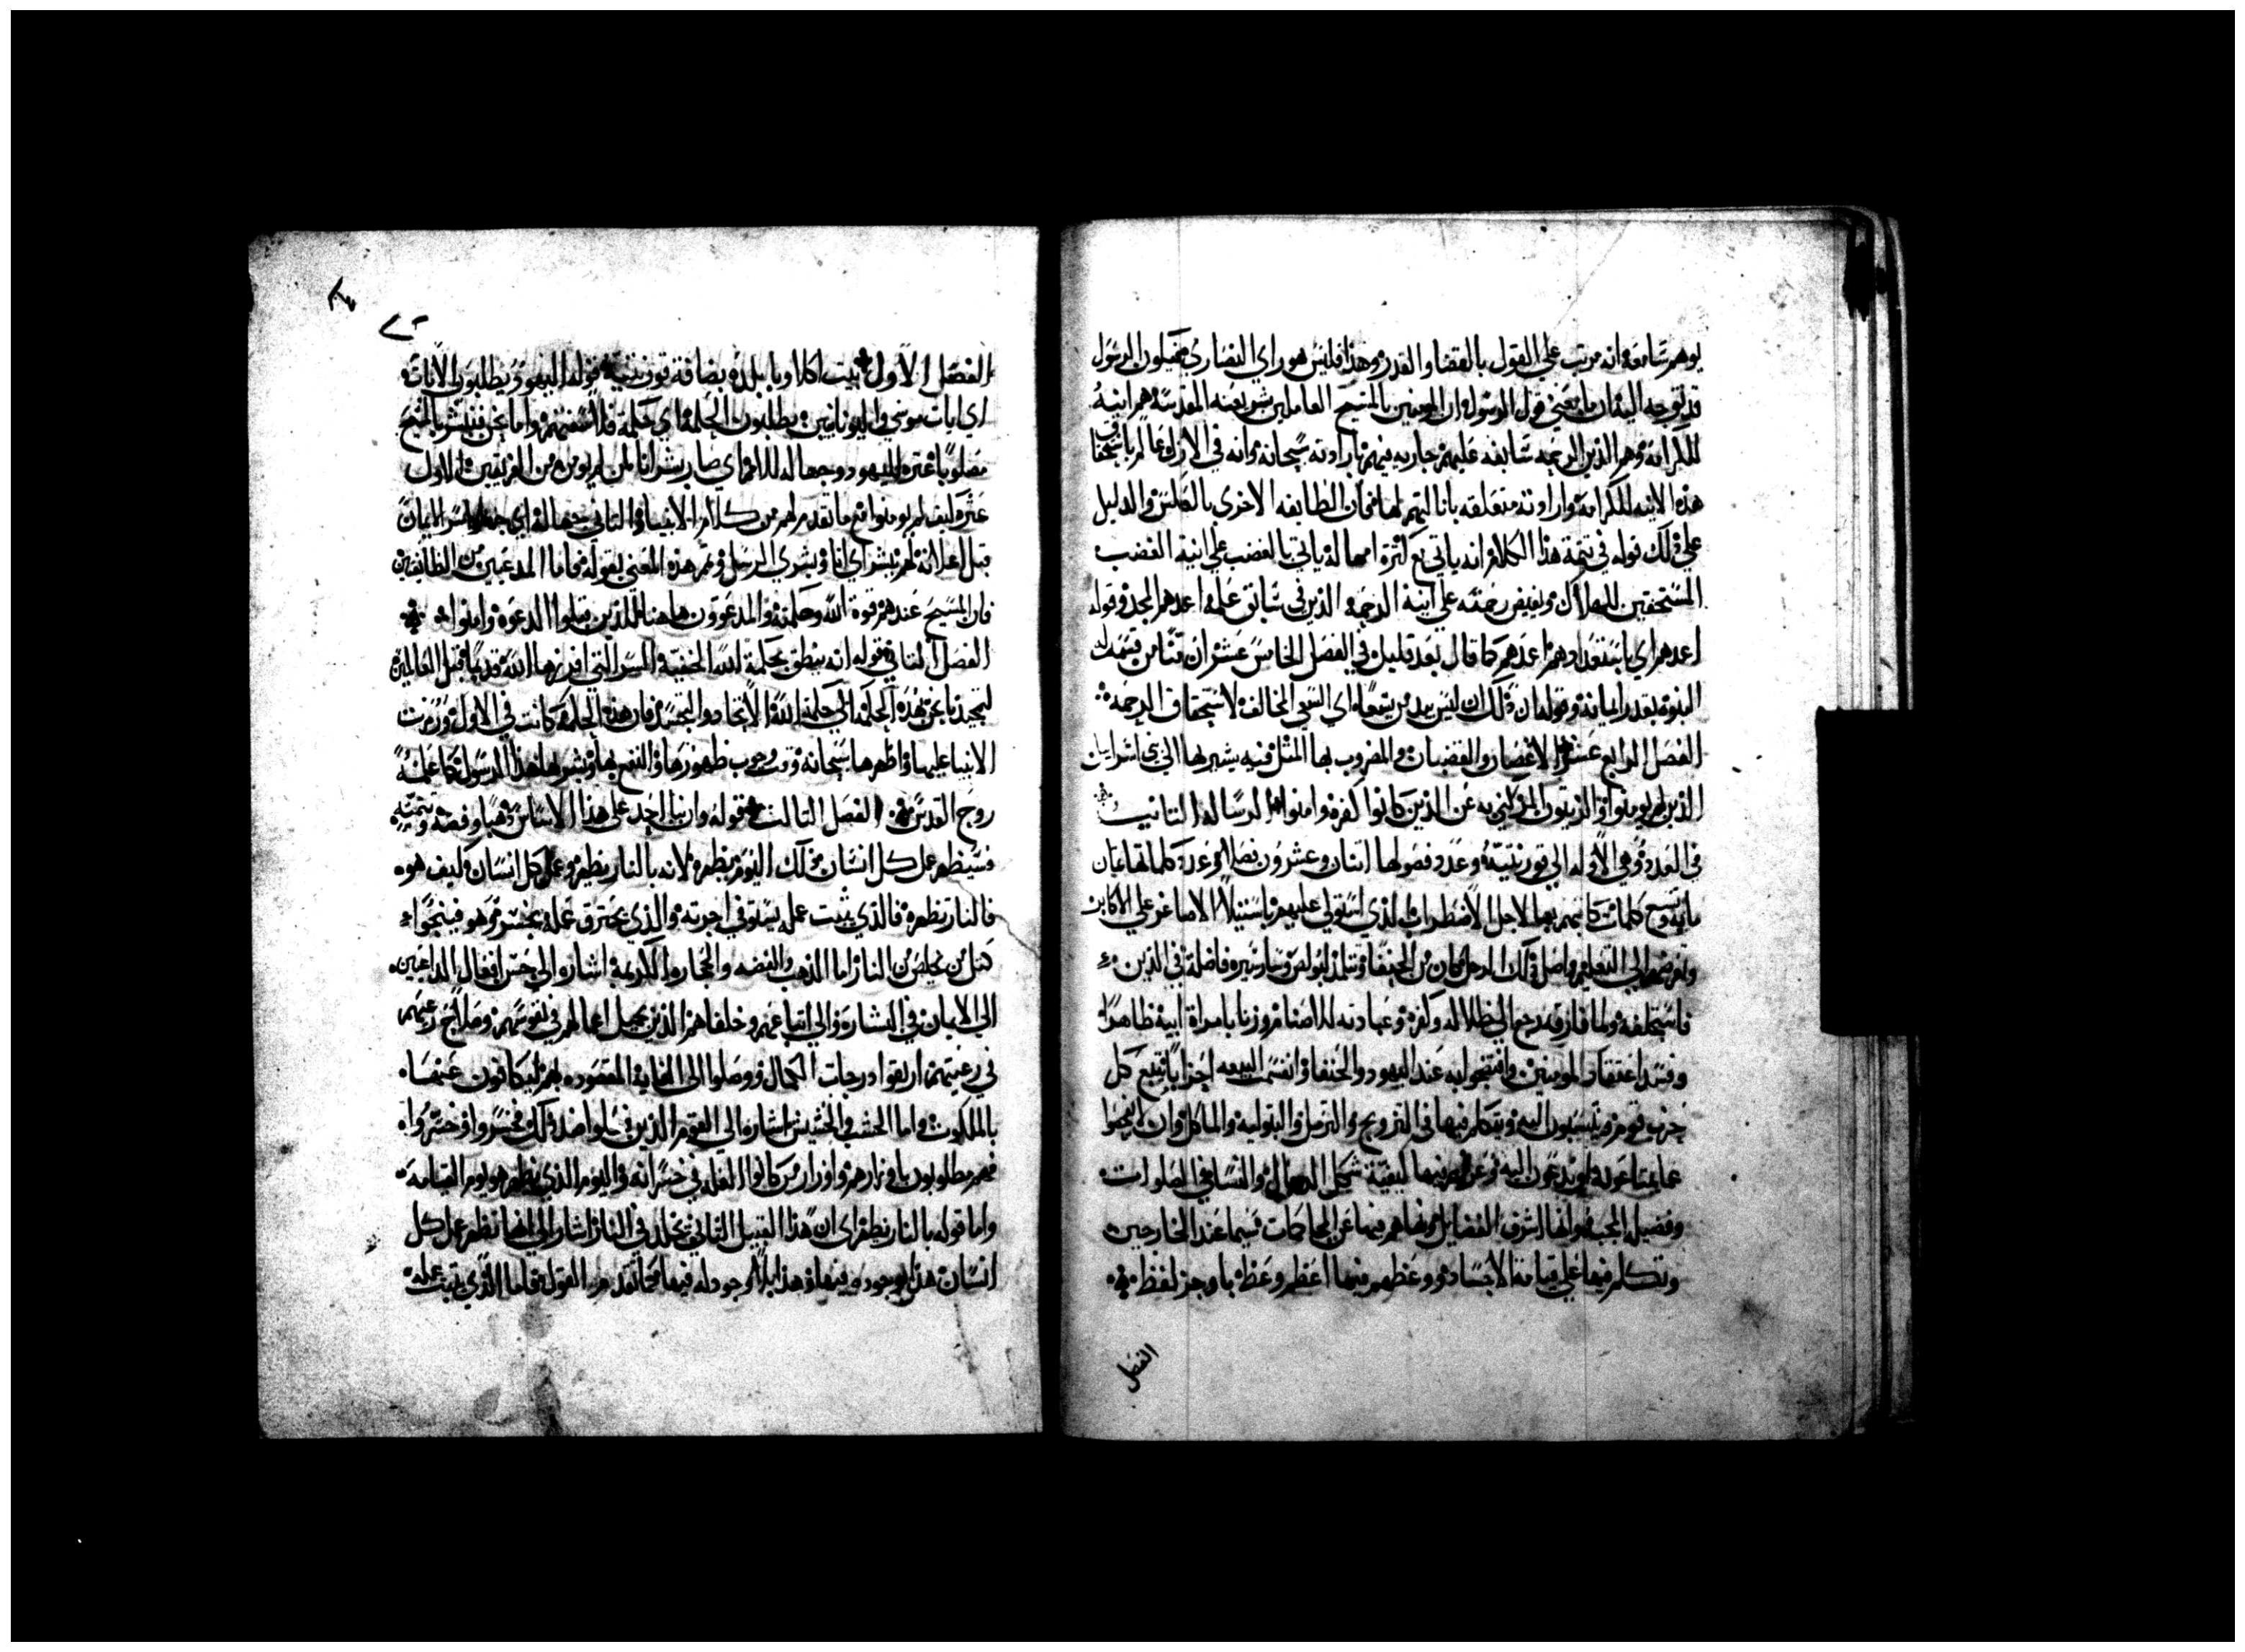 يوهم سامعه انه مرتب علي القول بالقضا والقدر وهذا فليس هو راي النصاري فيكون الرسول
قد توجه اليه ان ما يعني قول الرسول ان المومنين بالمسيح العاملين بشريعته المقدسة هم انية
للكرامة وهم الذين الرحمة سابغه عليهم جاريه فيهم بارادته سبحانه وانه في الازل عالم باستحقاق
هذه الانيه للكرامة وارادته متعلقه باناليتهم لها فان الطايفه الاخري بالعكس والدليل
علي ذلك قوله في تتمة هذا الكلام انه ياتي مع كثرة امهاله ياتي بالغضب علي انية الغضب
المستحقين للهلاك ويفيض رحمته علي انية الرحمه الذين في سابق علمه اعدهم للمجد وقوله
اعدهم اي باستعدادهم اعدهم كما قال بعد قليل في الفصل الخامس عشر ان تنا من قسم له
النبوة بقدر ايمانه وقوله ان ذلك ان ليس بيد من يسعا اي السعي المخالف لاستحقاق الرحمه
الفصل الرابع عشر الاغصان والقضبان والمضروب بها المثل فيه يشير بها الي بني اسراييل
الذين لم يومنوا والزيتون المر كني به عن الذين كانوا كفرة وامنوا الرسالة الثانيه
في العدد وهي الاوله الي قورنتية وعدد فصولها اثنان وعشرون فصلا وعدد كلماتها ثمان
مايه وتسع كلمات كاتبهم بها لاجل الاضطراب الذي استولي عليهم باستيلا الاصاغر علي الاكابر
وتعرضهم الي التعليم واصل ذلك الرجل كان من الحنفا وتتلمذ لبولص وسار سيره فاضلة في الدين
فاستخلفه ولما فارقه رجع الي ضلاله وكفره وعبادته للاصنام وزنا بامراة ابيه ظاهرا
وفسد اعتقاد المومنين وافتضحوا به عند اليهود والحنفا وانقسمت البيعه احزابا يتبع كل
حزب قوم وينسبون اليه ويتكلم فيها في التزويج والترمل والبتوليه والماكل وان
عليه ويدعون اليه وعرفهم فيها كيفية شكل الرجال والنسا في الصلوات
وفضيله المحبه وانها اشرف الفضايل ونهاهم فيها عن المحاكمات سيما عند الخارجين
وتكلم فيها علي قيامة الاجساد ووعظهم فيها اعظم وعظ باوجز لفظ
الفصل
الفصل الاول بيت اكلاويا بلده بضافة قورنتية قوله اليهود يطلبون الايات
اي ايات موسي واليونانيين يطلبون الحكمة اي حكمة فلاسفتهم واما نحن فنبشر بالمسيح
مصلوبا عثره لليهود وجهاله للامم اي صار بشرانا لمن لم يومن من الفريقين الاول
عثره كيف لم يومنوا مع ما تقدم لهم من كلام الانبيا والثاني جهالة اي سر الايمان
قبل اعلانه لهم بشراي انا وبشري الرسل وتمم هذه المعني بقوله فاما المدعيين من الطايفتين
فان المسيح عندهم قوة الله وحكمته والمدعوون هاهنا للذين قبلوا الدعوة وامنوا
الفصل الثاني قوله انه ينطق بحكمة الله الخفية السر التي افرزها الله قديما قبل العالمين
لتمجيدنا نحن بهذه الحكمة اي حكمة الله الاتحاد والتجسد فان هذه الحكمة كانت في الاول ورمزت
الانبيا عليها واظهرها سبحانه وقت وجوب ظهورها والنفع بها وبشر بها هذا الرسول كما علمه
روح القدس الفصل الثالث قوله وان بنا احد علي هذا الاساس ذهبا وفضه وتتمته
فسيظهر عمل كل انسان من ذلك اليوم يظهره لانه بالنار يظهر وعمل كل انسان كيف هو
فالنار تظهره فالذي يثبت عمله يستوفي اجرته والذي يحترق عمله يخسر وهو فينجوا
كمثل من يخلص من النار اما الذهب والفضه والحجاره الكريمة اشاره الي حسن افعال الداعيين
الي الايمان في البشاره والي اتباعهم وخلفاهم الذين بجميل اعمالهم في نفوسهم وصلاح رعيتهم
في رعيتهم ارتقوا درجات الكمال ووصلوا الي الغاية المقصوده لهم فيكافون عنها
بالملكوت واما الخشب والحشيش اشاره الي القوم الذين فعلوا ضد ذلك فخسروا وخسروا
فهم مطلوبون باوزارهم واوزار من كانوا العله في خسرانه واليوم الذي يظهر هو يوم القيامه
واما قوله بالنار يظهر اي ان هذا القبيل الثاني يخلد في النار اشار الي انها تظهر عمل كل
انسان هذا بوجوده فيها وهذا بلا وجود له فيها كما تقدم القول فاما الذي يثبت عمله